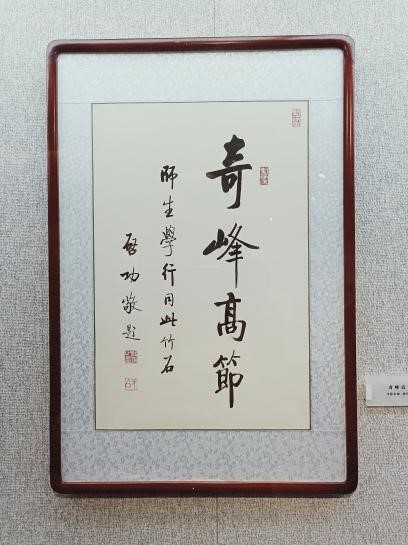 奇峰高節
師生學行同此竹石
啓功敬題